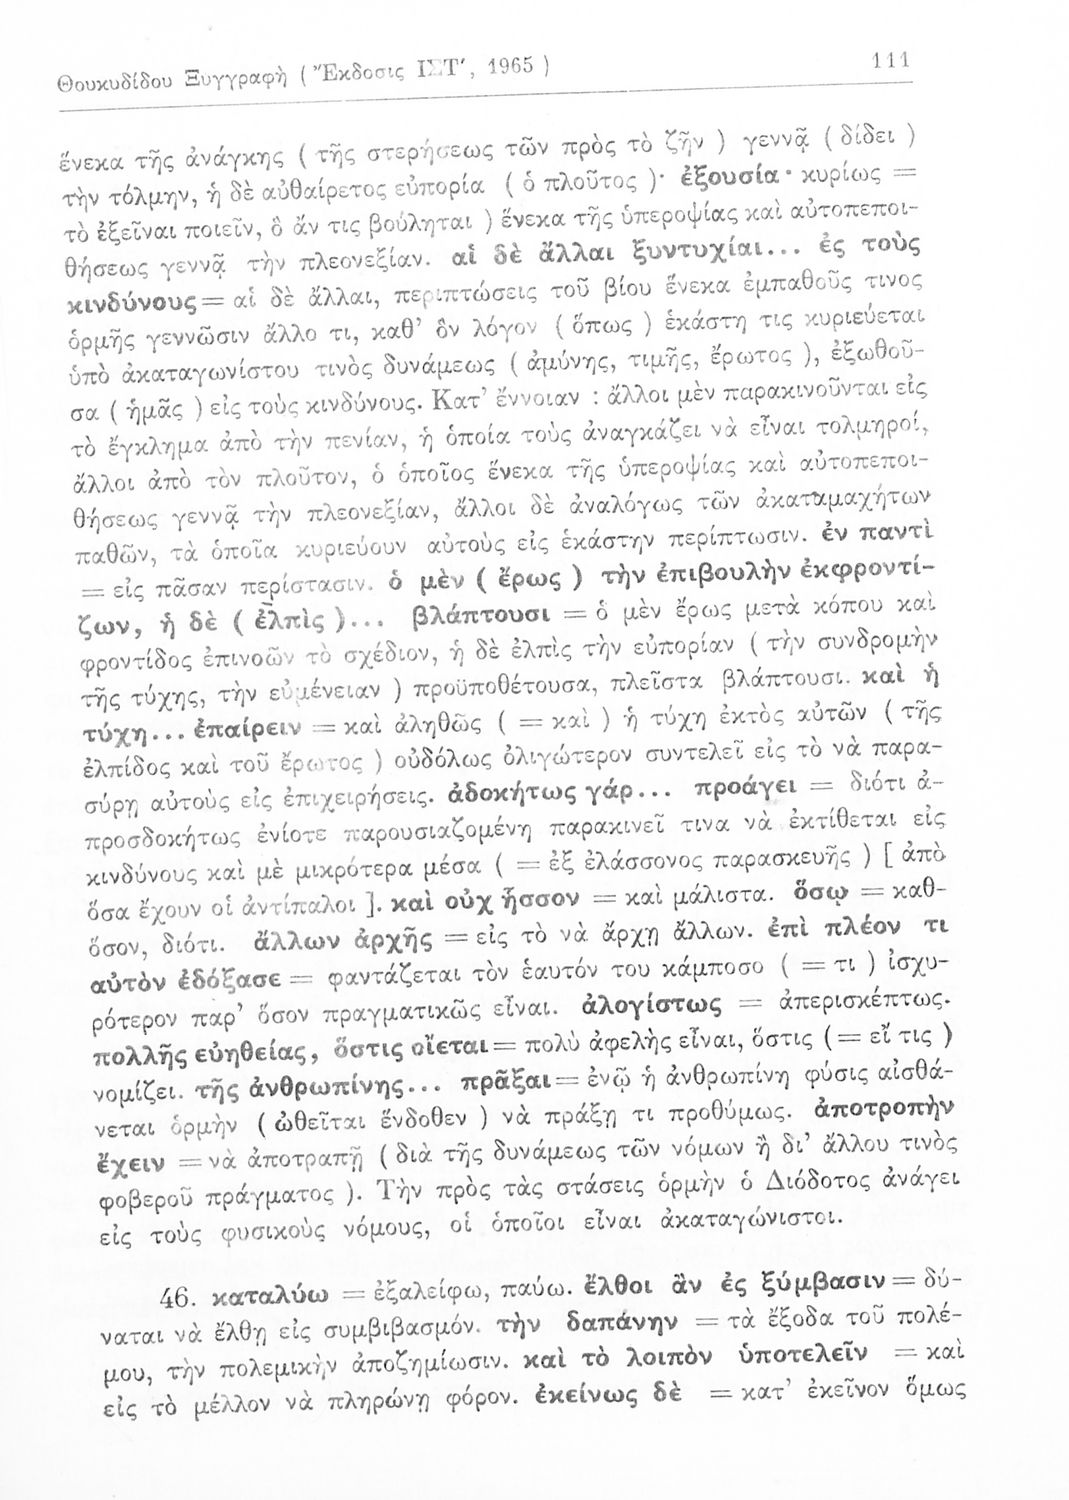 Θουκυδίδου Ξυγγραφὴ ( Ἔκδοσις ΙΣΤ', 1965 ) 111
ἕνεκα τῆς ἀνάγκης ( τῆς στερήσεως τῶν πρὸς τὸ ζῆν ) γεννᾷ ( δίδει )
τὴν τόλμην, ἡ δὲ αὐθαίρετος εὐπορία ( ὁ πλοῦτος )· ἐξουσία· κυρίως =
τὸ ἐξεῖναι ποιεῖν, ὃ ἄν τις βούληται ) ἕνεκα τῆς ὑπεροψίας καὶ αὐτοπεποι-
θήσεως γεννᾷ τὴν πλεονεξίαν. αἱ δὲ ἄλλαι ξυντυχίαι... ἐς τοὺς
κινδύνους = αἱ δὲ ἄλλαι, περιπτώσεις τοῦ βίου ἕνεκα ἐμπαθοῦς τινος
ὁρμῆς γεννῶσιν ἄλλο τι, καθ' ὃν λόγον ( ὅπως ) ἑκάστη τις κυριεύεται
ὑπὸ ἀκαταγωνίστου τινὸς δυνάμεως ( ἀμύνης, τιμῆς, ἔρωτος ), ἐξωθοῦ-
σα ( ἡμᾶς ) εἰς τοὺς κινδύνους. Κατ' ἔννοιαν : ἄλλοι μὲν παρακινοῦνται εἰς
τὸ ἔγκλημα ἀπὸ τὴν πενίαν, ἡ ὁποία τοὺς ἀναγκάζει νὰ εἶναι τολμηροί,
ἄλλοι ἀπὸ τὸν πλοῦτον, ὁ ὁποῖος ἕνεκα τῆς ὑπεροψίας καὶ αὐτοπεποι-
θήσεως γεννᾷ τὴν πλεονεξίαν, ἄλλοι δὲ ἀναλόγως τῶν ἀκαταμαχήτων
παθῶν, τὰ ὁποῖα κυριεύουν αὐτοὺς εἰς ἑκάστην περίπτωσιν. ἐν παντὶ
= εἰς πᾶσαν περίστασιν. ὁ μὲν ( ἔρως ) τὴν ἐπιβουλὴν ἐκφροντί-
ζων, ἡ δὲ ( ἐλπὶς )... βλάπτουσι = ὁ μὲν ἔρως μετὰ κόπου καὶ
φροντίδος ἐπινοῶν τὸ σχέδιον, ἡ δὲ ἐλπὶς τὴν εὐπορίαν ( τὴν συνδρομὴν
τῆς τύχης, τὴν εὐμένειαν ) προϋποθέτουσα, πλεῖστα βλάπτουσι. καὶ ἡ
τύχη... ἐπαίρειν = καὶ ἀληθῶς ( = καὶ ) ἡ τύχη ἐκτὸς αὐτῶν ( τῆς
ἐλπίδος καὶ τοῦ ἔρωτος ) οὐδόλως ὀλιγώτερον συντελεῖ εἰς τὸ νὰ παρα-
σύρῃ αὐτοὺς εἰς ἐπιχειρήσεις. ἀδοκήτως γάρ... προάγει = διότι ἀ-
προσδοκήτως ἐνίοτε παρουσιαζομένη παρακινεῖ τινα νὰ ἐκτίθεται εἰς
κινδύνους καὶ μὲ μικρότερα μέσα ( = ἐξ ἐλάσσονος παρασκευῆς ) [ ἀπὸ
ὅσα ἔχουν οἱ ἀντίπαλοι ]. καὶ οὐχ ἧσσον = καὶ μάλιστα. ὅσῳ = καθ-
ὅσον, διότι. ἄλλων ἀρχῆς = εἰς τὸ νὰ ἄρχῃ ἄλλων. ἐπὶ πλέον τι
αὐτὸν ἐδόξασε = φαντάζεται τὸν ἑαυτόν του κάμποσο ( = τι ) ἰσχυ-
ρότερον παρ' ὅσον πραγματικῶς εἶναι. ἀλογίστως = ἀπερισκέπτως.
πολλῆς εὐηθείας, ὅστις οἴεται = πολὺ ἀφελὴς εἶναι, ὅστις ( = εἴ τις )
νομίζει. τῆς ἀνθρωπίνης... πρᾶξαι = ἐνῷ ἡ ἀνθρωπίνη φύσις αἰσθά-
νεται ὁρμὴν ( ὠθεῖται ἔνδοθεν ) νὰ πράξῃ τι προθύμως. ἀποτροπὴν
ἔχειν = νὰ ἀποτραπῇ ( διὰ τῆς δυνάμεως τῶν νόμων ἢ δι' ἄλλου τινὸς
φοβεροῦ πράγματος ). Τὴν πρὸς τὰς στάσεις ὁρμὴν ὁ Διόδοτος ἀνάγει
εἰς τοὺς φυσικοὺς νόμους, οἱ ὁποῖοι εἶναι ἀκαταγώνιστοι.
46. καταλύω = ἐξαλείφω, παύω. ἔλθοι ἂν ἐς ξύμβασιν = δύ-
ναται νὰ ἔλθῃ εἰς συμβιβασμόν. τὴν δαπάνην = τὰ ἔξοδα τοῦ πολέ-
μου, τὴν πολεμικὴν ἀποζημίωσιν. καὶ τὸ λοιπὸν ὑποτελεῖν = καὶ
εἰς τὸ μέλλον νὰ πληρώνῃ φόρον. ἐκείνως δὲ = κατ' ἐκεῖνον ὅμως